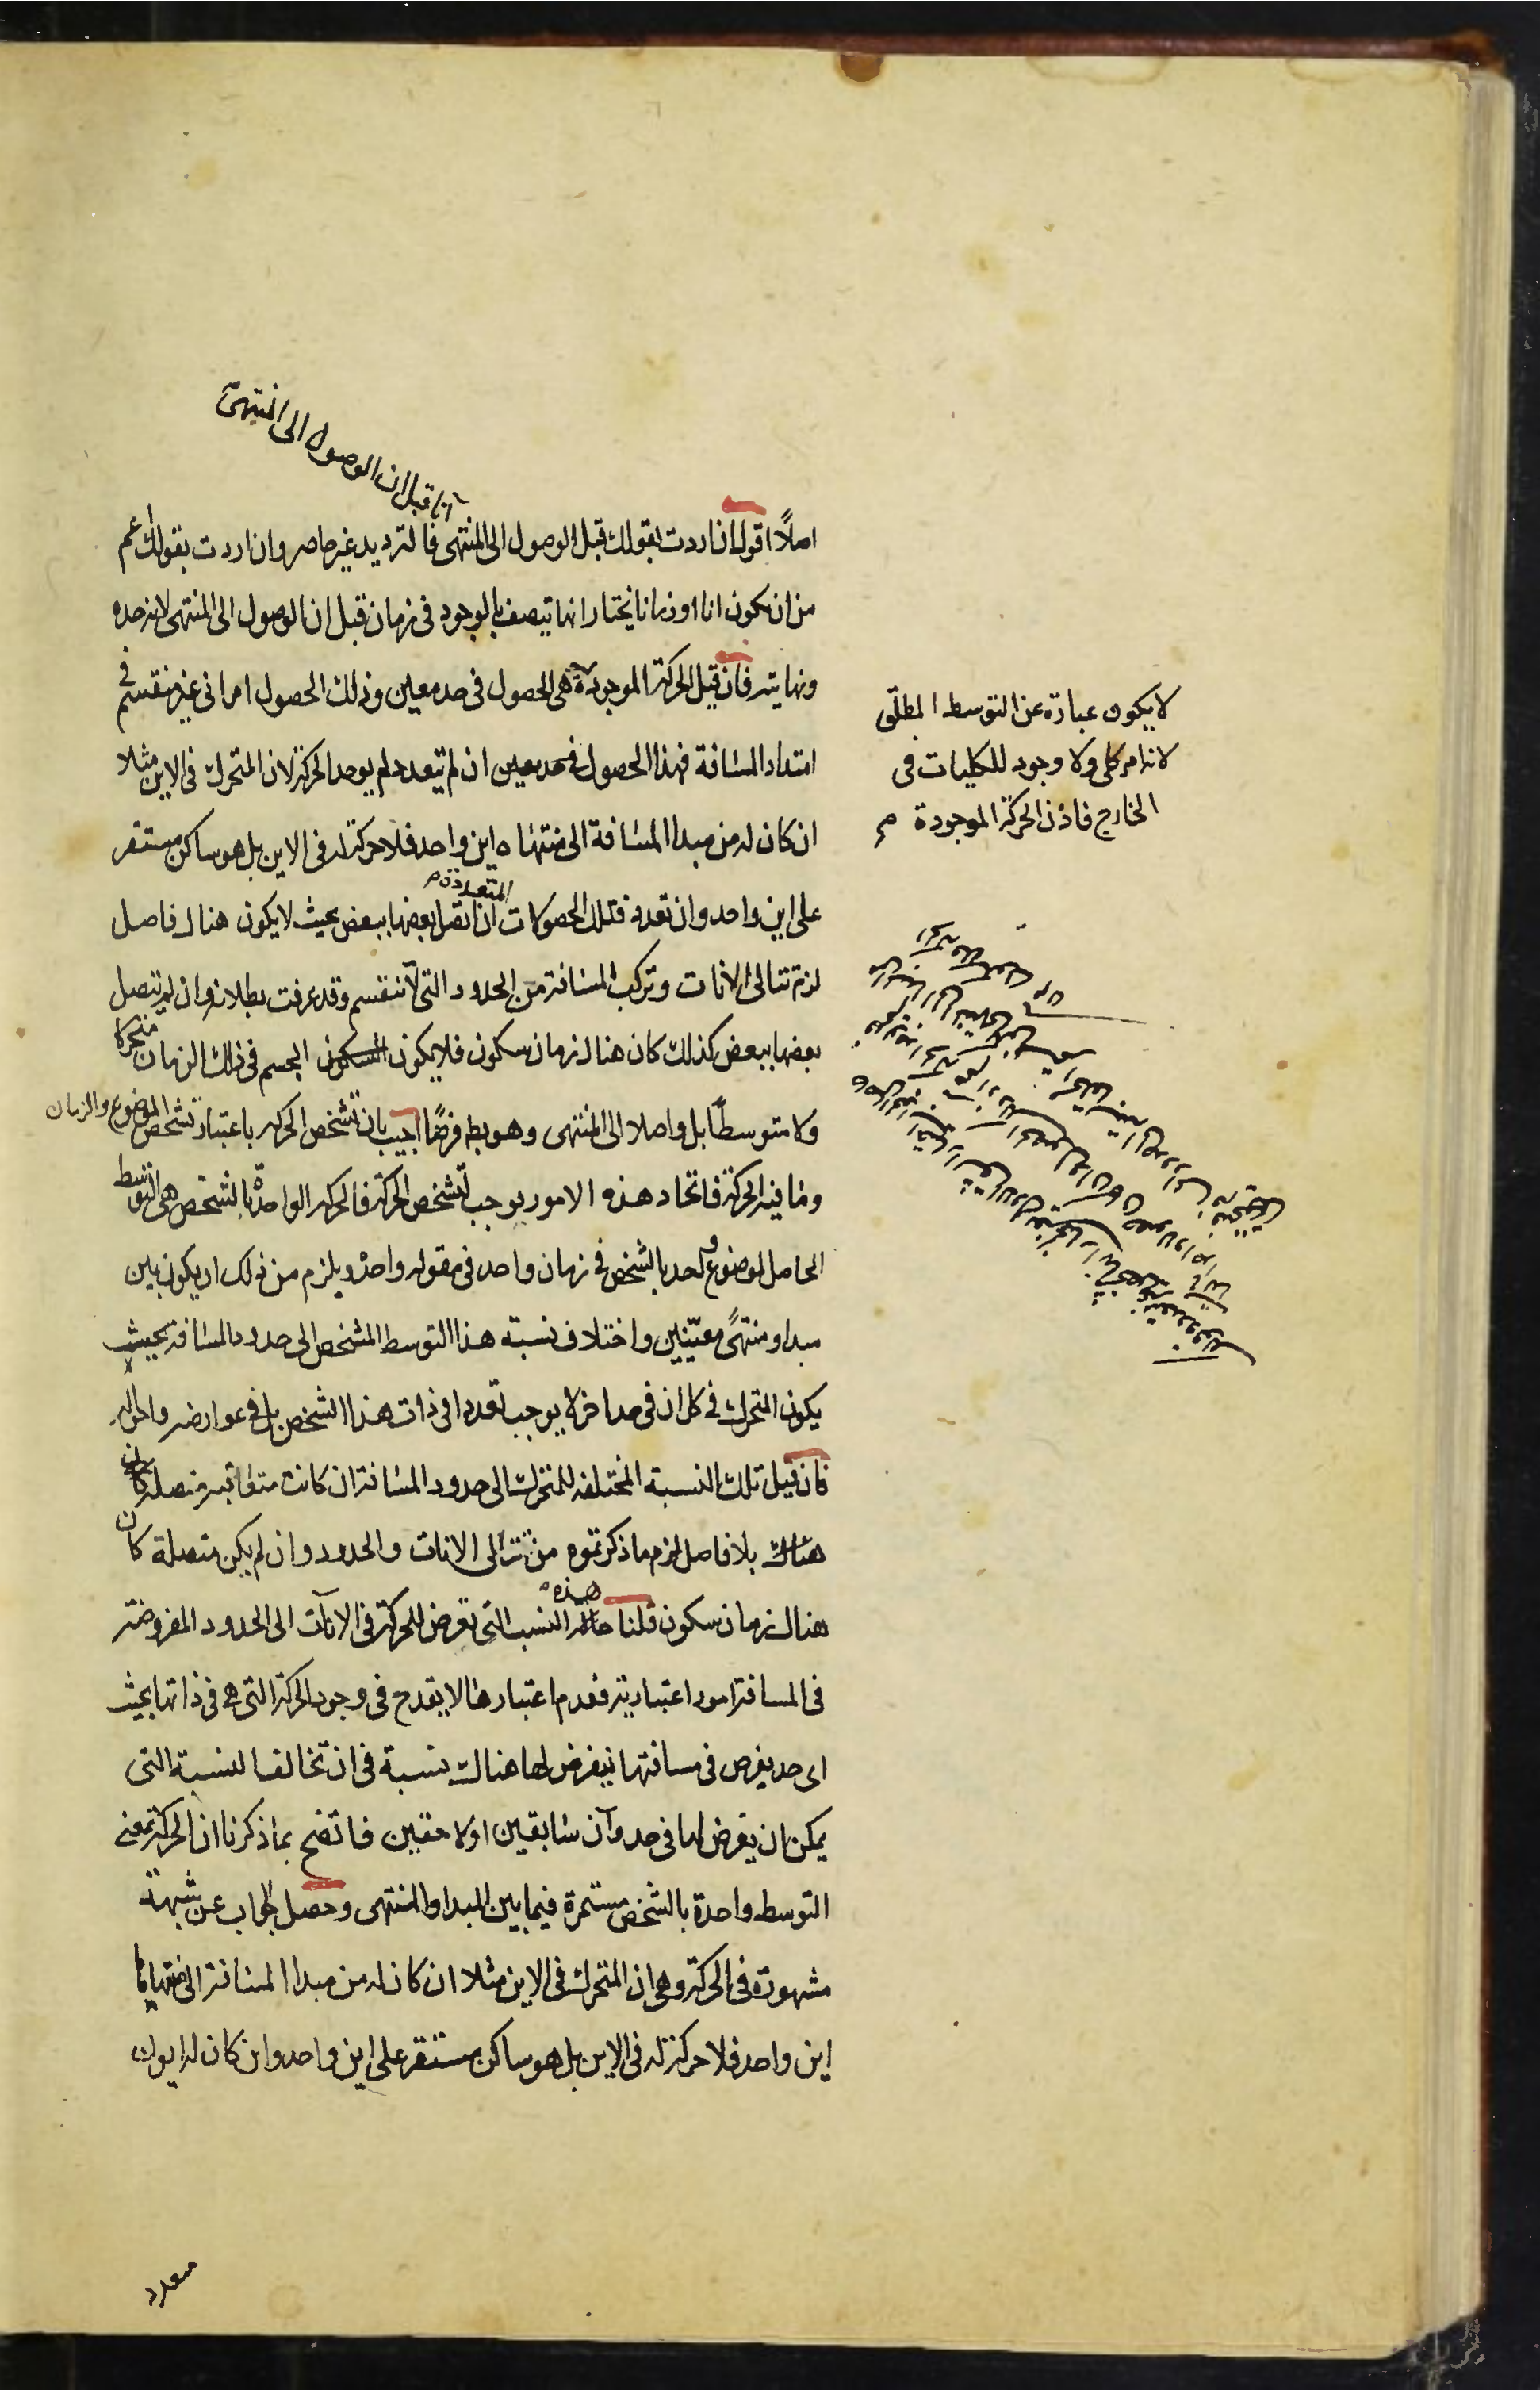 آن ما قبل ان الوصول الى المنتهى
اصلاً اقول ان اردت بقولك قبل الوصول الى المنتهى فالترديد غير حاصر وان اردت بقولك اعم
من ان يكون انا او زمانا نختار انها تتصف بالوجود فى زمان قبل ان الوصول الى المنتهى لانه حده
ونهايته فان قيل الحركة الموجودة هى الحصول فى حد معين وذلك الحصول امر انى غير منقسم فى
امتداد المسافة فهذا الحصول فى حد معين ان لم يتعدد لم يوجد الحركة لان المتحرك فى الاين مثلا
ان كان له من مبدا المسافة الى منتهاه اين واحد فلا حركة له فى الاين بل هو ساكن مستقر
المتعددة
على اين واحد وان تعدد فتلك الحصولات ان اتصل بعضها ببعض بحيث لا يكون هناك فاصل
لزم تتالى الانات وتركب المسافة من الحدود التى لا تنقسم وقد عرفت بطلانه وان لم يتصل
بعضها ببعض كذلك كان هناك زمان سكون فلا يكون الجسم فى ذلك الزمان متحركا
ولا متوسطاً بل واصلا الى المنتهى وهو بط فرضًا اجيب بان تشخص الحركه باعتبار تشخص الموضوع والزمان
وما فيه الحركة فاتحاد هذه الامور يوجب تشخص الحركة فالحركه الواحدة بالشخص هى التوسط
الحاصل لموضوع واحد بالشخص فى زمان واحد فى مقوله واحدة ويلزم من ذلك ان يكون بين
مبدا ومنتهًى معيّنين واختلاف نسبة هذا التوسط المشخص الى حدود المسافة بحيث
يكون المتحرك فى كل ان فى حد اخر لا يوجب تعددا فى ذات هذا الشخص بل فى عوارضه واحواله
فان قيل تلك النسبة المختلفه للمتحرك الى حدود المسافة ان كانت متعاقبه متصله كان
هناك بلا فاصل لزم ما ذكرتموه من تتالى الانات والحدود وان لم يكن متصلة كان
هذه
هناك زمان سكون قلنا النسب التى تعرض للحركة فى الآنات الى الحدود المفروضة
فى المسافة امور اعتبارية فعدم اعتبارها لا يقدح فى وجود الحركة التى هى فى ذاتها بحيث
اى حد يفرض فى مسافتها يفرض لها هناك نسبة فى ان تخالف النسبة التى
يمكن ان يفرض لها فى حد وآن سابقين او لاحقين فاتضح بما ذكرنا ان الحركة بمعنى
التوسط واحدة بالشخص مستمرة فيما بين المبدا والمنتهى وحصل الجواب عن شبهة
مشهورة فى الحركة وهى ان المتحرك فى الاين مثلا ان كان له من مبدا المسافة الى منتهاها
اين واحد فلا حركة له فى الاين بل هو ساكن مستقر على اين واحد وان كان له ايون
متعدد
لا يكون عبارة عن التوسط المطلق
لانه امر كلى ولا وجود للكليات فى
الخارج فاذن الحركة الموجودة